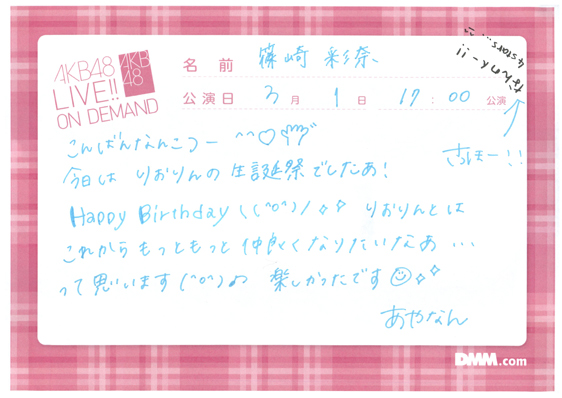 AKB48
LIVE!!
ON DEMAND
AKB
48
名前 篠崎 彩奈
公演日 3月 1日 17:00 公演
4 stars...
さほー!!
こんばんなんこつー ^^♡
今日は りおりんの生誕祭でしたあ!
Happy Birthday \(^o^)/ りおりんとは
これから もっともっと 仲良くなりたいなあ...
って思います(^o^)♪ 楽しかったです☺
あやなん
DMM.com